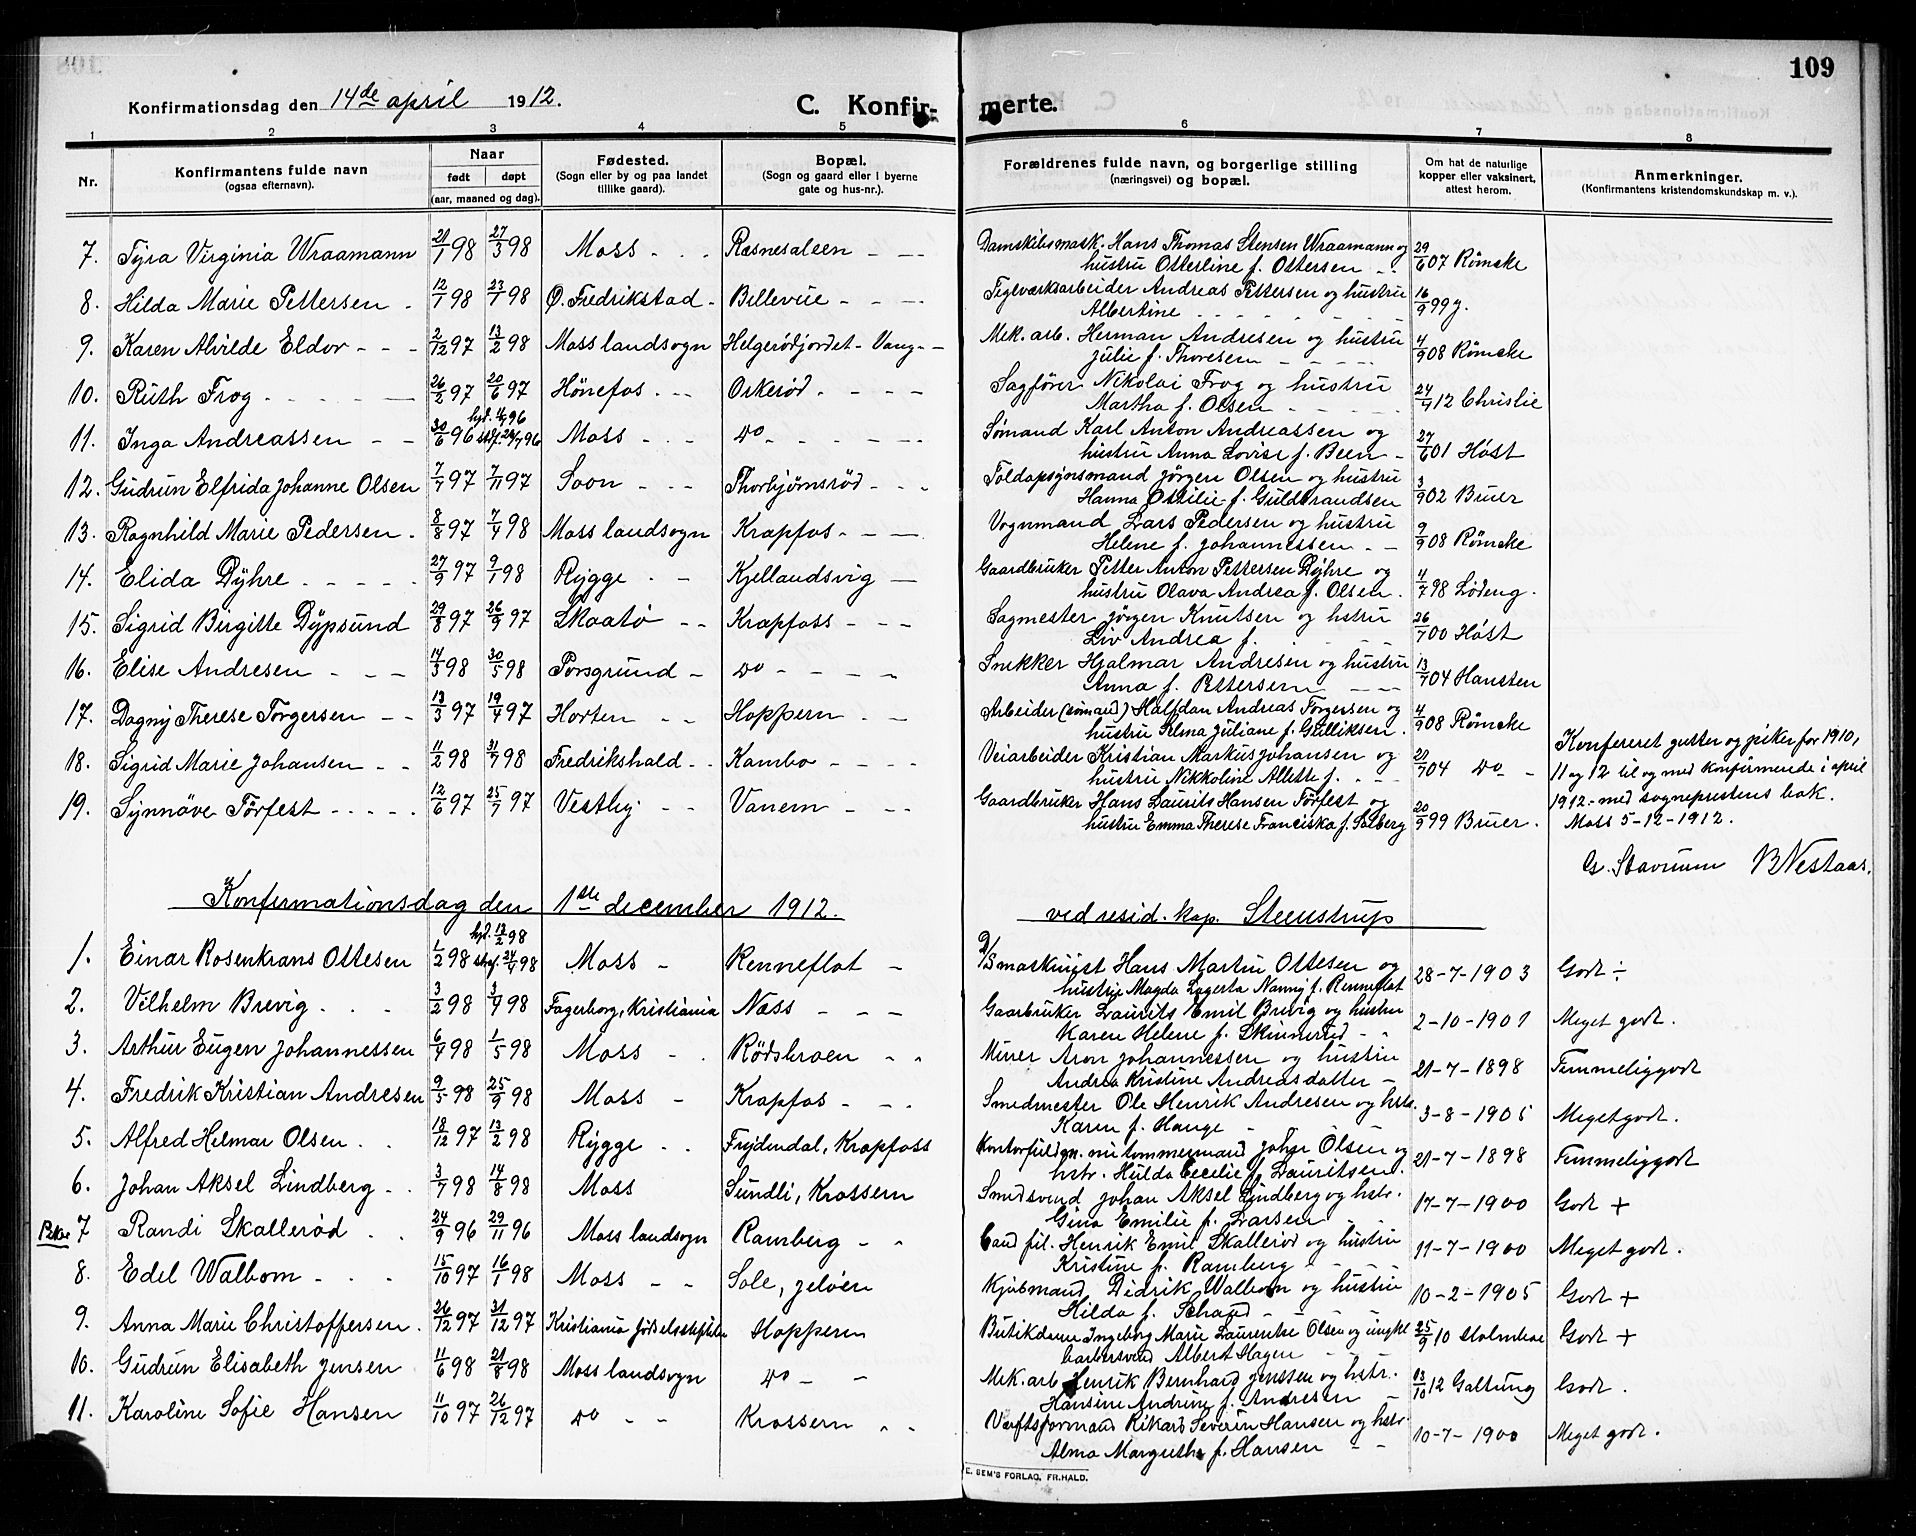 109
Konfirmationsdag den 14de april 1912. C. Konfirmerte.
1 2 3 4 5 6 7 8
Nr. Konfirmantens fulde navn (ogsaa efternavn). Naar født døpt (aar, maaned og dag). Fødested. (Sogn eller by og paa landet tillike gaard). Bopæl. (Sogn og gaard eller i byerne gate og hus-nr.). Forældrenes fulde navn, og borgerlige stilling (næringsvei) og bopæl. Om hat de naturlige kopper eller vaksinert, attest herom. Anmerkninger. (Konfirmantens kristendomskundskap m. v.).
7. Tyra Virginia Wraamann 21/1 98 27/3 98 Moss Ræsnesaleen Damskibsmask. Hans Thomas Stensen Wraamann og 29/6 07 Rømcke
hustru Otterline f. Ottersen
8. Hilda Marie Pettersen 12/1 98 23/1 98 Ø. Fredrikstad Bellevue Teglværksarbeider Andreas Pettersen og hustru 16/9 99
Albertine
9. Karen Alvilde Eldor 2/12 97 13/2 98 Moss landsogn Helgerødjordet - Vang Mek. arb. Herman Andresen og hustru 4/9 08 Rømcke
Julie f. Thoresen
10. Ruth Frog 26/2 97 20/6 97 Hønefos Orkerød Sagfører Nikolai Frog og hustru 24/4 12 Christie
Martha f. Olsen
11. Inga Andreassen 30/6 96 hjd. 4/7 96 Moss do Sømand Karl Anton Andreassen og 27/6 01 Høst
hustru Anna Lovise f. Been
12. Gudrun Elfrida Johanne Olsen 7/7 97 7/11 97 Soon Thorbjørnsrød Toldopsynsmand Jørgen Olsen og hustru 3/9 02 Bruer
Hanna Ottilie f. Guldbrandsen
13. Ragnhild Marie Pedersen 8/8 97 7/4 98 Moss landsogn Krapfos Vognmand Lars Pedersen og hustru 9/9 08 Rømcke
Helene f. Johannessen
14. Elida Dyhre 27/9 97 9/1 98 Rygge Kjellandsvig Gaardbruker Petter Anton Pettersen Dyhre og 4/7 98 Lødeng
hustru Olava Andrea f. Olsen
15. Sigrid Birgitte Dypsund 29/8 97 26/9 97 Skaatø Krapfoss Sagmester Jørgen Knutsen og hstru 26/7 00 Høst
Liv Andrea f.
16. Elise Andresen 14/3 98 30/5 98 Porsgrund do Snekker Hjalmar Andresen og hustru 13/7 04 Hansten
Anna f. Pettersen
17. Dagny Therese Torgersen 13/3 97 19/4 97 Horten Hoppern Arbeider (sømand) Halfdan Andreas Torgersen og 4/9 08 Rømcke
hustru Selma Juliane f. Gulliksen
18. Sigrid Marie Johansen 11/2 98 31/7 98 Fredrikshald Kambo Veiarbeider Kristian Markus Johansen og 21/7 04 do
hustru Nikkoline Allette f.
19. Synnøve Torfest 12/6 97 25/7 97 Vestby Vanem Gaardbruker Hans Laurits Hansen Torfest og 20/9 99 Bruer.
hustru Emma Therese Franciska f. Solberg
Konfereret gutter og piker for 1910,
11 og 12 til og med konfirmerende i april
1912 - med sogneprestens bok.
Moss 5-12-1912.
G. Stavrum B Nestaas.
Konfirmationsdag den 1ste december 1912. ved resid. kap. Steenstrup
1. Einar Rosenkrans Ottesen 1/2 98 hjd. 13/2 98 stadf. 24/4 98 Moss Renneflot D/S maskinist Hans Martin Ottesen og 28-7-1903 Godt ÷
hustru Magda Lagerta Nanny f. Renneflot
2. Vilhelm Brevig 3/2 98 3/4 98 Fagerborg, Kristiania Næss Gaarbruker Laurits Emil Brevig og hustru 2-10-1901 Meget godt.
Karen Helene f. Skinnerød
3. Arthur Eugen Johannessen 6/4 98 1/5 98 Moss Rødskroen Murer Aron Johannessen og hustru 21-7-1898 Temmeliggodt
Andrea Kristine Andreasdatter
4. Fredrik Kristian Andresen 9/5 98 25/9 98 Moss Krapfos Smedmester Ole Henrik Andresen og hstr. 3-8-1905 Megetgodt.
Karen f. Hauge
5. Alfred Helmar Olsen 18/12 97 13/2 98 Rygge Frydendal, Krapfoss Kontorfuldm. nu tømmermand Johan Olsen og 21-7-1898 Temmeliggodt
hstr. Hulda Cecelie f. Lauritsen.
6. Johan Aksel Lindberg 3/7 98 14/8 98 Moss Sundli, Krossern Smedsvend Johan Aksel Lindberg og hstr. 17-7-1900 Godt +
Gina Emilie f. Larsen
Piker 7 Randi Skallerød 24/9 96 29/11 96 Moss landsogn Ramberg Cand fil. Henrik Emil Skallerød og hustru 11-7-1900 Meget godt.
Kristine f. Ramberg
8. Edel Walbom 15/10 97 16/1 98 Moss Sole, Jeløen Kjøbmand Didrik Walbom og hustru 10-2-1905 Godt +
Hilda f. Schand
9. Anna Marie Christoffersen 26/12 97 31/12 97 Kristiania fødselsstiftelse Hoppern Butikdame Ingeborg Marie Laurentse Olsen og ungkl 25/9 10 Holmboe Godt +
barbersvend Albert Hagen
10. Gudrun Elisabeth Jensen 11/6 98 21/8 98 Moss landsogn do Mek. arb Henrik Bernhard Jenssen og hstr. 13/10 12 Galtung Godt.
Hansine Andrine f. Andresen
11. Karoline Sofie Hansen 11/10 97 26/12 97 do Krossern Værftsformand Rikard Severin Hansen og hstr 10-7-1900 Meget godt.
Alma Margrethe f. Hansen
E. SEM'S FORLAG, FR.HALD.